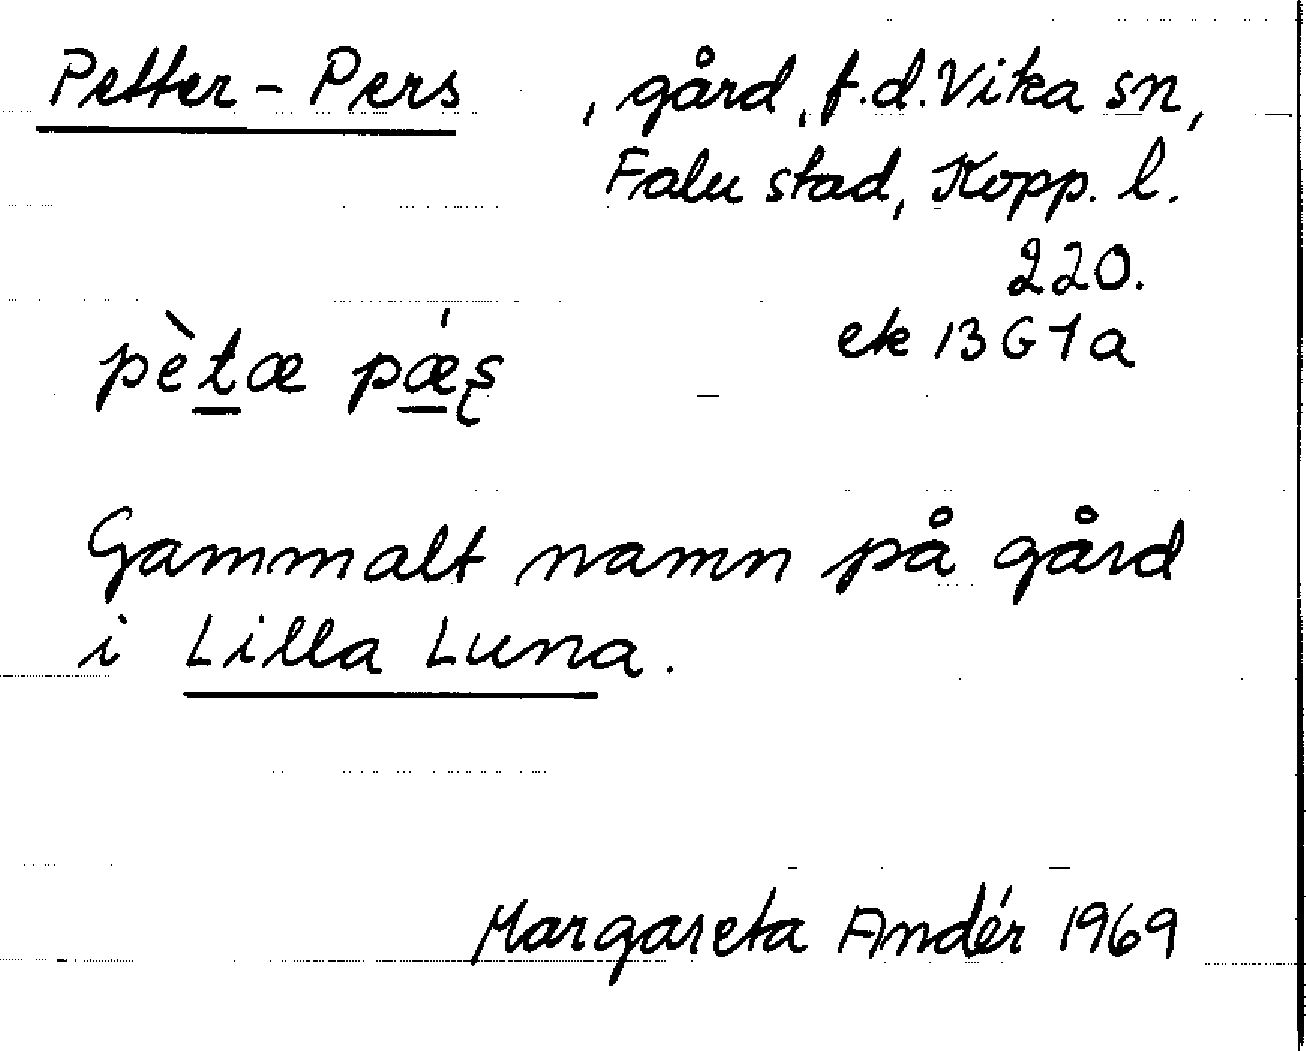 Petter-Pers , gård, f.d. Vika sn,
Falu stad, Kopp. l.
220.
ek 13G1a
pètæ pǽʂ
Gammalt namn på gård
i Lilla Luna.
Margareta Andér 1969